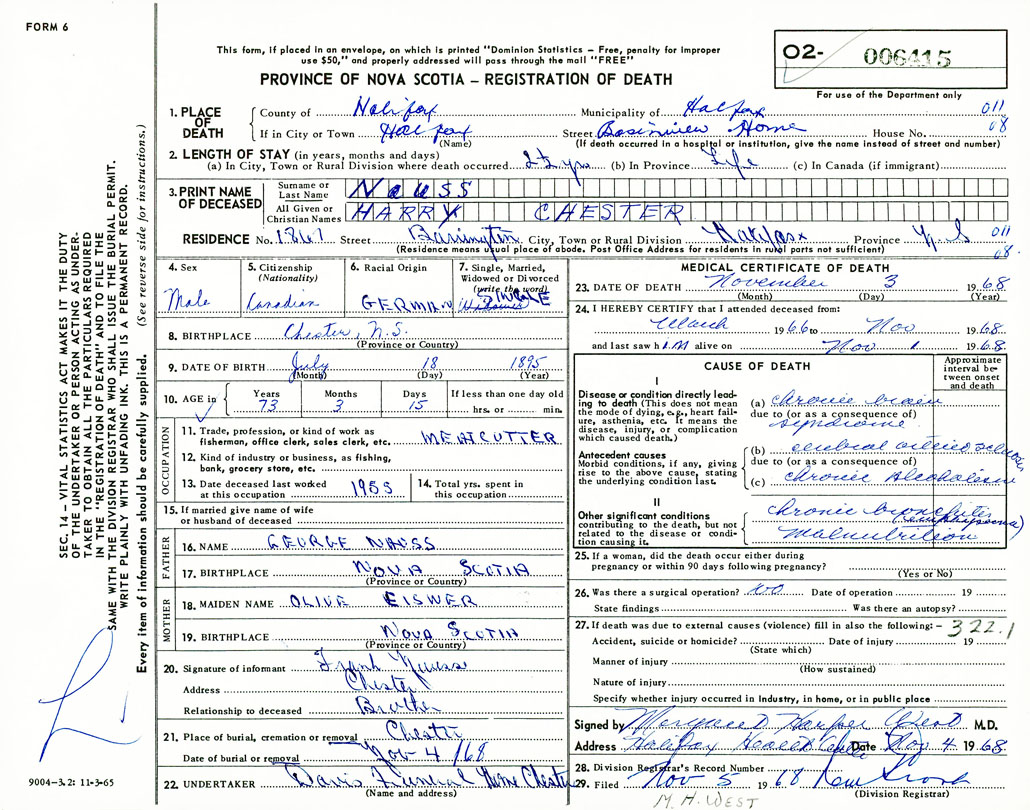 FORM 6
This form, if placed in an envelope, on which is printed "Dominion Statistics – Free, penalty for improper
use $50," and properly addressed will pass through the mail "FREE"
PROVINCE OF NOVA SCOTIA – REGISTRATION OF DEATH
02- 006415
For use of the Department only
SEC. 14 – VITAL STATISTICS ACT MAKES IT THE DUTY
OF THE UNDERTAKER OR PERSON ACTING AS UNDER-
TAKER TO OBTAIN ALL THE PARTICULARS REQUIRED
IN THE "REGISTRATION OF DEATH" AND TO FILE THE
SAME WITH THE DIVISION REGISTRAR WHO SHALL ISSUE THE BURIAL PERMIT.
WRITE PLAINLY WITH UNFADING INK. THIS IS A PERMANENT RECORD.
Every item of information should be carefully supplied. (See reverse side for instructions.)
1. PLACE OF DEATH
County of Halifax Municipality of Halifax 011
If in City or Town Halifax Street Basinview Home House No. 08
(Name) (If death occurred in a hospital or institution, give the name instead of street and number)
2. LENGTH OF STAY (in years, months and days)
(a) In City, Town or Rural Division where death occurred 2½ yrs (b) In Province Life (c) In Canada (if immigrant)
3. PRINT NAME OF DECEASED
Surname or Last Name NAUSS
All Given or Christian Names HARRY CHESTER
RESIDENCE No. 1867 Street Barrington City, Town or Rural Division Halifax Province N.S 011
(Residence means usual place of abode. Post Office Address for residents in rural parts not sufficient) 08.
4. Sex Male
5. Citizenship (Nationality) Canadian
6. Racial Origin GERMAN
7. Single, Married, Widowed or Divorced (write the word) SINGLE
8. BIRTHPLACE Chester, N.S.
(Province or Country)
9. DATE OF BIRTH July 18 1895
(Month) (Day) (Year)
10. AGE in Years 73 Months 3 Days 15 If less than one day old hrs. or min.
OCCUPATION
11. Trade, profession, or kind of work as
fisherman, office clerk, sales clerk, etc. MEATCUTTER
12. Kind of industry or business, as fishing,
bank, grocery store, etc.
13. Date deceased last worked
at this occupation 1955
14. Total yrs. spent in
this occupation
15. If married give name of wife
or husband of deceased
FATHER
16. NAME GEORGE NAUSS
17. BIRTHPLACE NOVA SCOTIA
(Province or Country)
MOTHER
18. MAIDEN NAME OLIVE EISNER
19. BIRTHPLACE NOVA SCOTIA
(Province or Country)
20. Signature of informant Frank Nauss
Address Chester
Relationship to deceased Brother
21. Place of burial, cremation or removal Chester
Date of burial or removal Nov 4/68
22. UNDERTAKER Davis Funeral Home Chester
(Name and address)
9004–3.2: 11-3-65
MEDICAL CERTIFICATE OF DEATH
23. DATE OF DEATH November 3 1968
(Month) (Day) (Year)
24. I HEREBY CERTIFY that I attended deceased from:
March 1966 to Nov 1968
and last saw him alive on Nov 1 1968
CAUSE OF DEATH
Approximate interval be-tween onset and death
I
Disease or condition directly lead-
ing to death (This does not mean
the mode of dying, e.g., heart fail-
ure, asthenia, etc. It means the
disease, injury, or complication
which caused death.)
(a) chronic brain
due to (or as a consequence of)
syndrome
Antecedent causes
Morbid conditions, if any, giving
rise to the above cause, stating
the underlying condition last.
(b) cerebral arteriosclerosis
due to (or as a consequence of)
(c) chronic Alcoholism
II
Other significant conditions
contributing to the death, but not
related to the disease or condi-
tion causing it.
chronic bronchitis
(emphysema)
Malnutrition
25. If a woman, did the death occur either during
pregnancy or within 90 days following pregnancy?
(Yes or No)
26. Was there a surgical operation? no Date of operation 19
State findings Was there an autopsy?
27. If death was due to external causes (violence) fill in also the following: – 322.1
Accident, suicide or homicide? Date of injury 19
(State which)
Manner of injury
(How sustained)
Nature of injury
Specify whether injury occurred in Industry, in home, or in public place
Signed by Margaret Harper West M.D.
Address Halifax Health Centre Date Nov 4 1968
28. Division Registrar's Record Number
29. Filed Nov 5 1968
(Division Registrar)
M. H. WEST